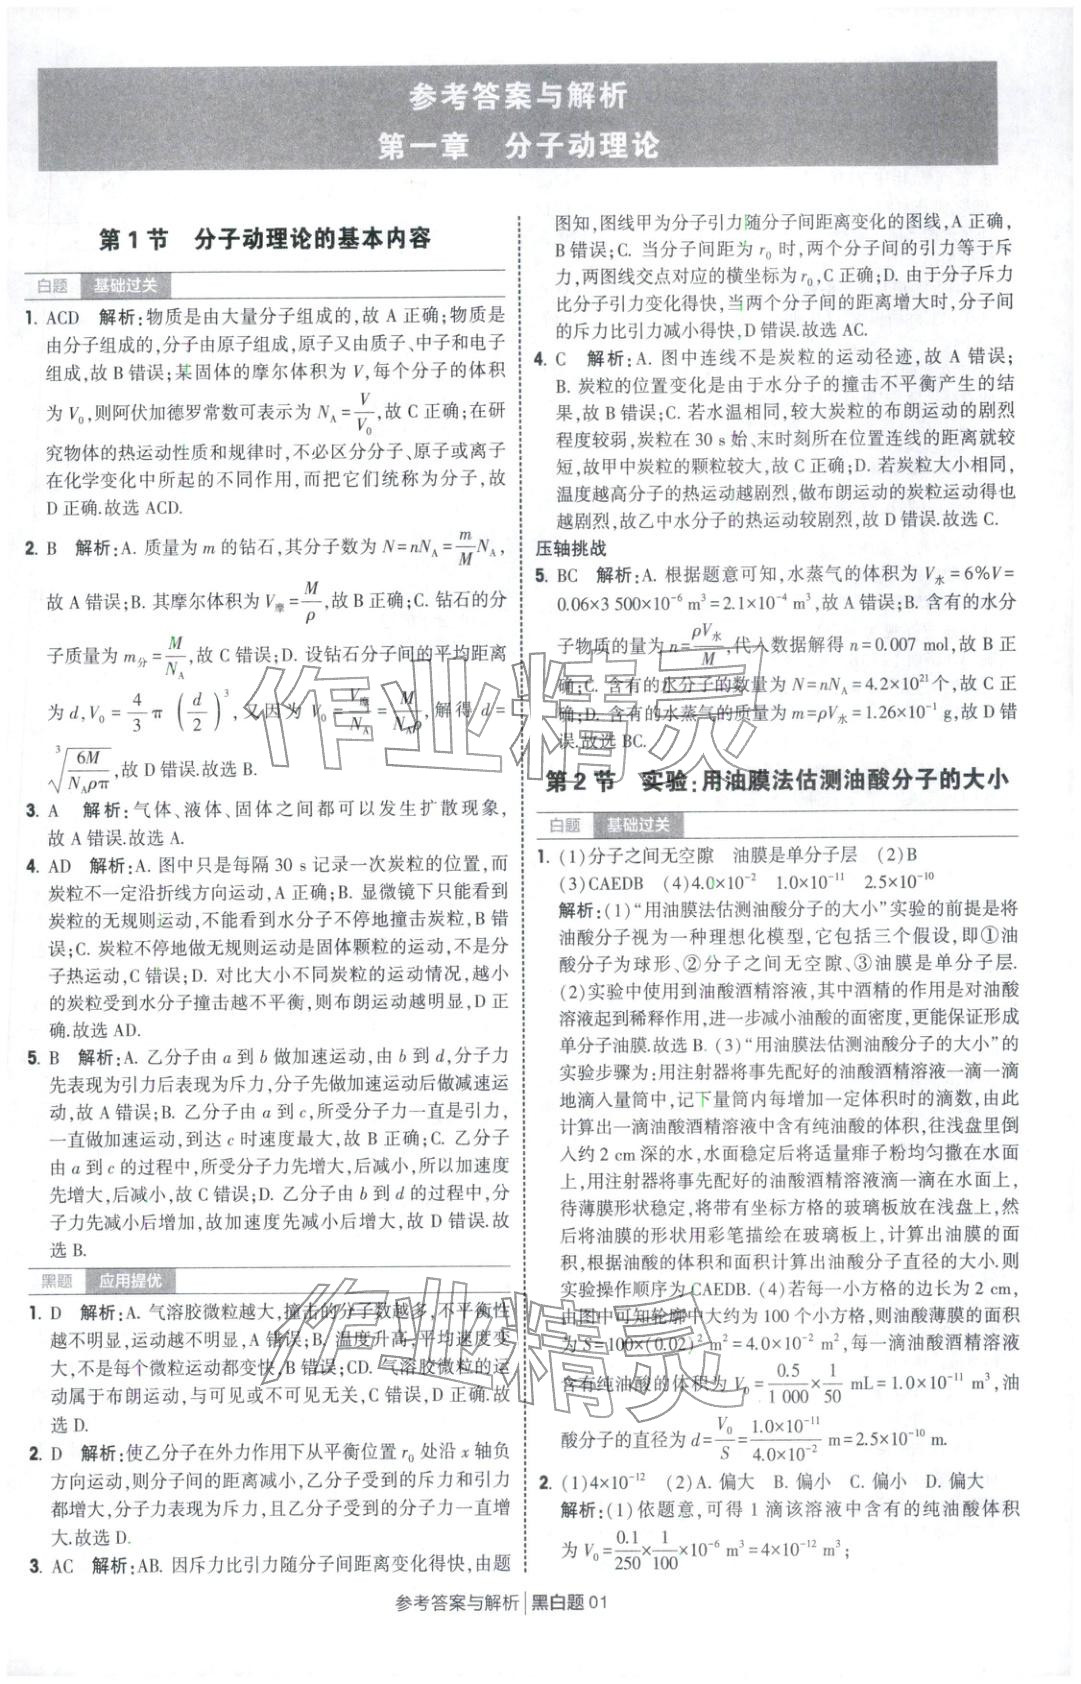 参考答案与解析
第一章 分子动理论
第 1 节 分子动理论的基本内容
白题 基础过关
1. ACD 解析:物质是由大量分子组成的,故 A 正确;物质是
由分子组成的,分子由原子组成,原子又由质子、中子和电子
组成,故 B 错误;某固体的摩尔体积为 V,每个分子的体积
为 V₀,则阿伏加德罗常数可表示为 N_A=V/V₀,故 C 正确;在研
究物体的热运动性质和规律时,不必区分分子、原子或离子
在化学变化中所起的不同作用,而把它们统称为分子,故
D 正确.故选 ACD.
2. B 解析:A. 质量为 m 的钻石,其分子数为 N=nN_A=m/M N_A,
故 A 错误;B. 其摩尔体积为 V摩=M/ρ,故 B 正确;C. 钻石的分
子质量为 m分=M/N_A,故 C 错误;D. 设钻石分子间的平均距离
为 d,V₀=4/3 π(d/2)³,又因为 V₀=V摩/N_A=M/(N_Aρ),解得 d=
³√(6M/(N_Aρπ)),故 D 错误.故选 B.
3. A 解析:气体、液体、固体之间都可以发生扩散现象,
故 A 错误.故选 A.
4. AD 解析:A. 图中只是每隔 30 s 记录一次炭粒的位置,而
炭粒不一定沿折线方向运动,A 正确;B. 显微镜下只能看到
炭粒的无规则运动,不能看到水分子不停地撞击炭粒,B 错
误;C. 炭粒不停地做无规则运动是固体颗粒的运动,不是分
子热运动,C 错误;D. 对比大小不同炭粒的运动情况,越小
的炭粒受到水分子撞击越不平衡,则布朗运动越明显,D 正
确.故选 AD.
5. B 解析:A. 乙分子由 a 到 b 做加速运动,从 b 到 d,分子力
先表现为引力后表现为斥力,分子先做加速运动后做减速运
动,故 A 错误;B. 乙分子由 a 到 c,所受分子力一直是引力,
一直做加速运动,到达 c 时速度最大,故 B 正确;C. 乙分子
由 a 到 c 的过程中,所受分子力先增大,后减小,所以加速度
先增大,后减小,故 C 错误;D. 乙分子由 b 到 d 的过程中,分
子力先减小后增加,故加速度先减小后增大,故 D 错误.故
选 B.
黑题 应用提优
1. D 解析:A. 气溶胶微粒越大,撞击的分子数越多,不平衡性
越不明显,运动越不明显,A 错误;B. 温度升高,平均速度变
大,不是每个微粒运动都变快,B 错误;CD. 气溶胶微粒的运
动属于布朗运动,与能否可见无关,C 错误,D 正确.故
选 D.
2. D 解析:使乙分子在外力作用下从平衡位置 r₀ 处沿 x 轴负
方向运动,则分子间的距离减小,乙分子受到的斥力和引力
都增大,分子力表现为斥力,且乙分子受到的分子力一直增
大.故选 D.
3. AC 解析:AB. 因斥力比引力随分子间距离变化得快,由题
图知,图线甲为分子引力随分子间距离变化的图线,A 正确,
B 错误;C. 当分子间距为 r₀ 时,两个分子间的引力等于斥
力,两图线交点对应的横坐标为 r₀,C 正确;D. 由于分子斥力
比分子引力变化得快,当两个分子间的距离增大时,分子间
的斥力比引力减小得快,D 错误.故选 AC.
4. C 解析:A. 图中连线不是炭粒的运动径迹,故 A 错误;
B. 炭粒的位置变化是由于水分子的撞击不平衡产生的结
果,故 B 错误;C. 若水温相同,较大炭粒的布朗运动的剧烈
程度较弱,炭粒在 30 s 始、末时刻所在位置连线的距离就较
短,故甲中炭粒的颗粒较大,故 C 正确;D. 若炭粒大小相同,
温度越高分子的热运动越剧烈,做布朗运动的炭粒运动得也
越剧烈,故乙中水分子的热运动较剧烈,故 D 错误.故选 C.
压轴挑战
5. BC 解析:A. 根据题意可知,水蒸气的体积为 V水=6%V=
0.06×3 500×10⁻⁶ m³=2.1×10⁻⁴ m³,故 A 错误;B. 含有的水分
子物质的量为 n=ρV水/M,代入数据解得 n=0.007 mol,故 B 正
确;C. 含有的水分子的数量为 N=nN_A=4.2×10²¹个,故 C 正
确;D. 含有的水蒸气的质量为 m=ρV水=1.26×10⁻¹ g,故 D 错
误.故选 BC.
第 2 节 实验:用油膜法估测油酸分子的大小
白题 基础过关
1. (1)分子之间无空隙 油膜是单分子层 (2)B
(3)CAEDB (4)4.0×10⁻² 1.0×10⁻¹¹ 2.5×10⁻¹⁰
解析:(1)“用油膜法估测油酸分子的大小”实验的前提是将
油酸分子视为一种理想化模型,它包括三个假设,即①油
酸分子为球形、②分子之间无空隙、③油膜是单分子层.
(2)实验中使用到油酸酒精溶液,其中酒精的作用是对油酸
溶液起到稀释作用,进一步减小油酸的面密度,更能保证形成
单分子油膜.故选 B. (3)“用油膜法估测油酸分子的大小”的
实验步骤为:用注射器将事先配好的油酸酒精溶液一滴一滴
地滴入量筒中,记下量筒内每增加一定体积时的滴数,由此
计算出一滴油酸酒精溶液中含有纯油酸的体积,往浅盘里倒
入约 2 cm 深的水,水面稳定后将适量痱子粉均匀撒在水面
上,用注射器将事先配好的油酸酒精溶液滴一滴在水面上,
待薄膜形状稳定,将带有坐标方格的玻璃板放在浅盘上,然
后将油膜的形状用彩笔描绘在玻璃板上,计算出油膜的面
积,根据油酸的体积和面积计算出油酸分子直径的大小.则
实验操作顺序为 CAEDB. (4)若每一小方格的边长为 2 cm,
由图中可知轮廓中大约为 100 个小方格,则油酸薄膜的面积
为 S=100×(0.02)² m²=4.0×10⁻² m²,每一滴油酸酒精溶液
含有纯油酸的体积为 V₀=0.5/1 000×1/50 mL=1.0×10⁻¹¹ m³,油
酸分子的直径为 d=V₀/S=1.0×10⁻¹¹/4.0×10⁻² m=2.5×10⁻¹⁰ m.
2. (1)4×10⁻¹² (2)A. 偏大 B. 偏小 C. 偏小 D. 偏大
解析:(1)依题意,可得 1 滴该溶液中含有的纯油酸体积
为 V₀=0.1/250×1/100×10⁻⁶ m³=4×10⁻¹² m³;
参考答案与解析 黑白题 01
作业精灵
作业精灵